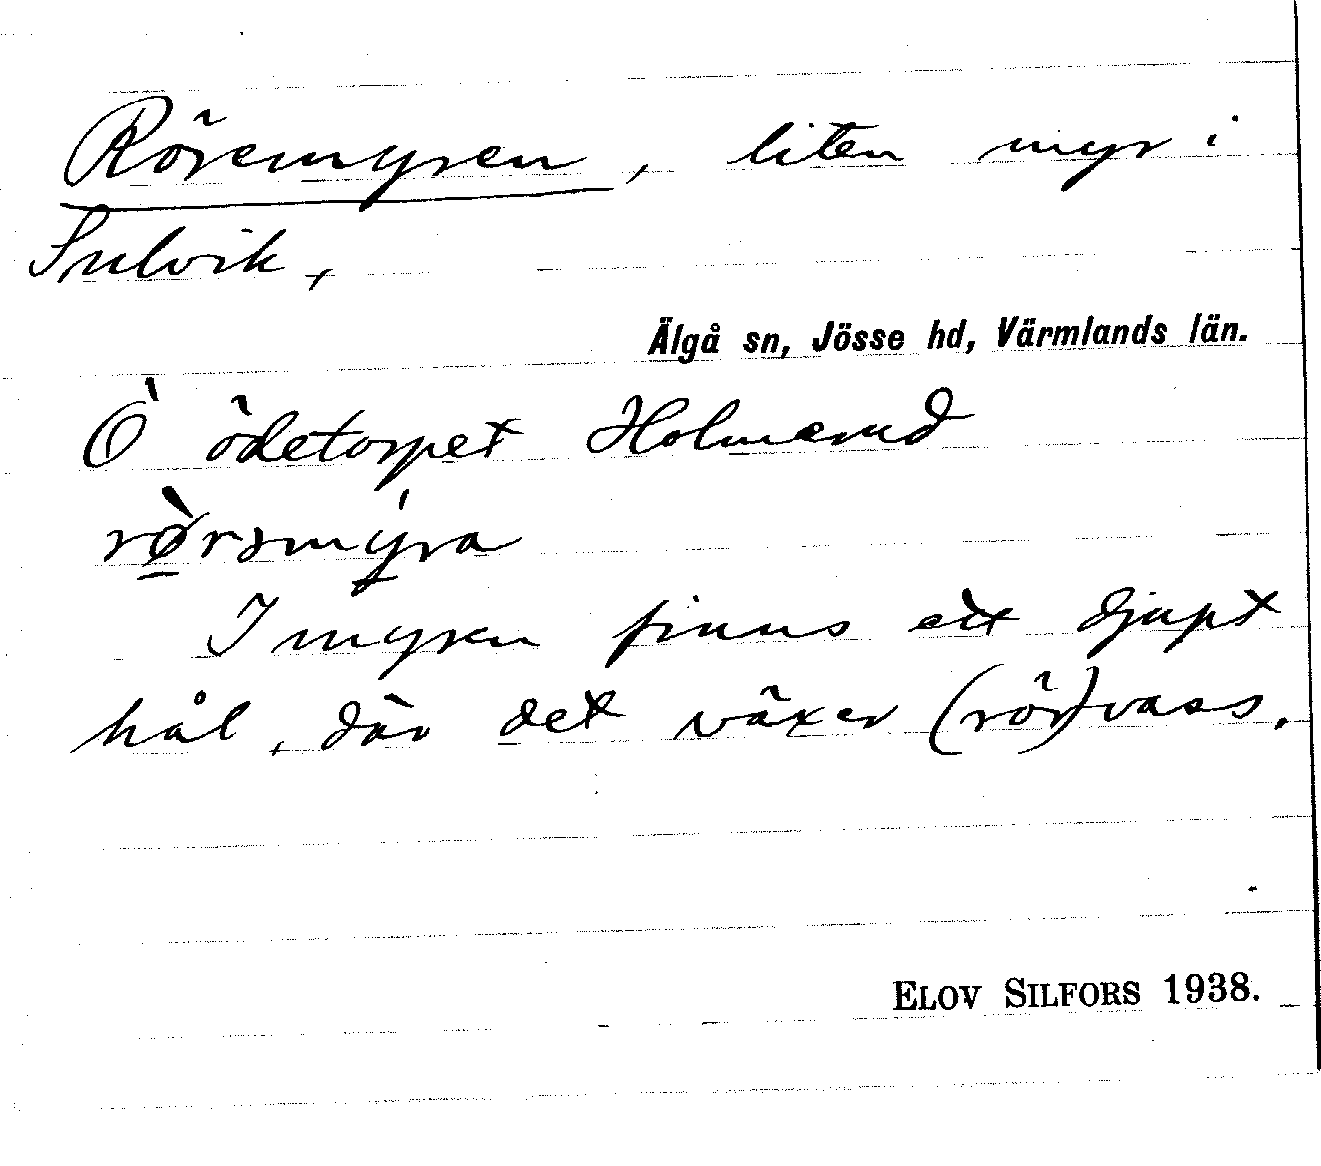 Röremyren, liten myr i
Sulvik,
Älgå sn, Jösse hd, Värmlands län.
Ö ödetorpet Holmerud
rø̀rsmýra
I myren finns ett djupt
hål, där det växer (rör)vass.
ELOV SILFORS 1938.